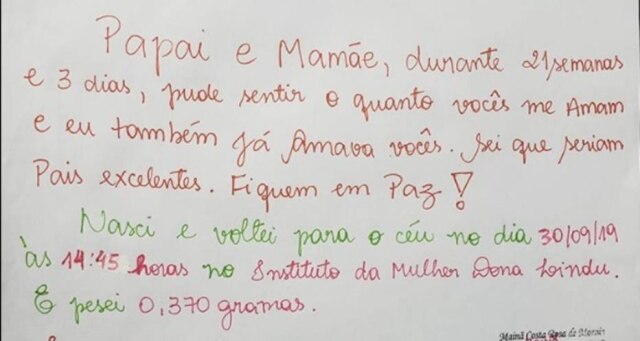 Papai e Mamãe, durante 21 semanas
e 3 dias, pude sentir o quanto vocês me Amam
e eu também já Amava vocês. Sei que seriam
Pais excelentes. Fiquem em Paz!
Nasci e voltei para o céu no dia 30/09/19
às 14:45 horas no Instituto da Mulher Dona Lindu.
E pesei 0,370 gramas.
Mainá Costa Rosa de Morais